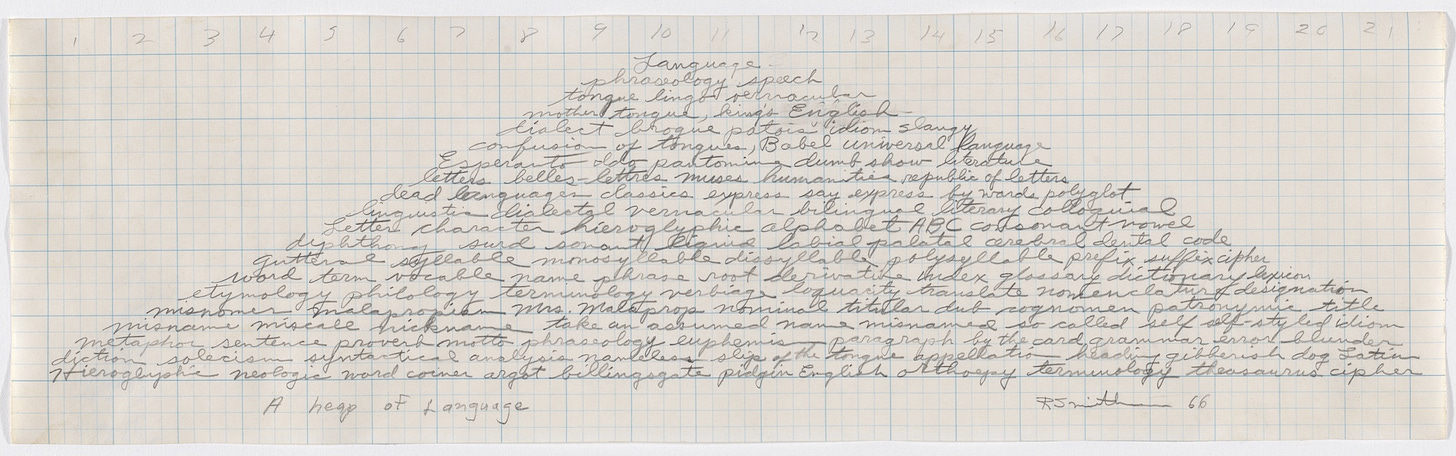 1 2 3 4 5 6 7 8 9 10 11 12 13 14 15 16 17 18 19 20 21
Language
phraseology speech
tongue lingo vernacular
mother tongue, king's English
dialect brogue patois idiom slangy
confusion of tongues, Babel universal language
Esperanto Ido pantomime dumb show literature
letters belles-lettres muses humanities republic of letters
dead languages classics express say express by words polyglot
linguistic dialectal vernacular bilingual literary colloquial
Letter character hieroglyphic alphabet ABC consonant vowel
diphthong surd sonant liquid labial palatal cerebral dental code
guttural syllable monosyllable dissyllable polysyllable prefix suffix cipher
word term vocable name phrase root derivative index glossary dictionary lexicon
etymology philology terminology verbiage loquacity translate nomenclature designation
misnomer malapropism Mrs. Malaprop nominal titular dub cognomen patronymic title
misname miscall nickname take an assumed name misnamed so called self self-styled idiom
metaphor sentence proverb motto phraseology euphemism paragraph by the card, grammar error blunder
diction solecism syntactical analysis nameless slip of the tongue appellation heading gibberish dog Latin
Hieroglyphic neologic word coiner argot billingsgate pidgin English orthoepy terminology theasaurus cipher
A heap of Language
RSmithson 66